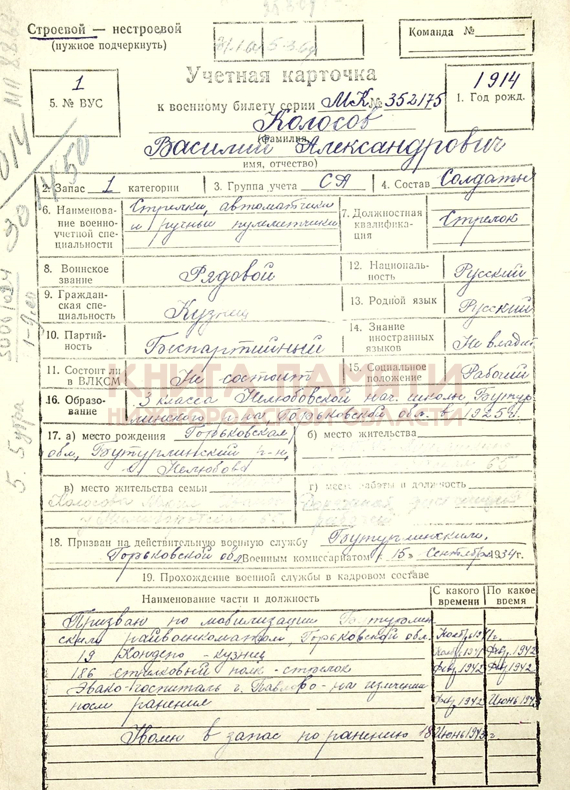 Строевой — нестроевой
(нужное подчеркнуть)
Команда №
1
5. № ВУС
Учетная карточка
к военному билету серии МК № 352175
1914
1. Год рожд.
Колосов
(фамилия,
Василий Александрович
имя, отчество)
2. Запас 1 категории
3. Группа учета СА
4. Состав Солдаты
6. Наименова-
ние военно-
учетной спе-
циальности
Стрелки, автоматчики
и ручные пулеметчики
7. Должностная
квалифика-
ция
Стрелок
8. Воинское
звание
Рядовой
12. Националь-
ность
Русский
9. Граждан-
ская спе-
циальность
Кузнец
13. Родной язык
Русский
10. Партий-
ность
Беспартийный
14. Знание
иностранных
языков
Не владеет
11. Состоит ли
в ВЛКСМ
Не состоит
15. Социальное
положение
Рабочий
КНИГА ПАМЯТИ
НИЖЕГОРОДСКОЙ ОБЛАСТИ
16. Образо-
вание
3 класса Нелюбовской нач. школы, Бутур
линского р-на, Горьковской обл. в 1925 г.
17. а) место рождения Горьковская
обл, Бутурлинский р-н,
Нелюбово
б) место жительства
в) место жительства семьи
г) место работы и должность
18. Призван на действительную военную службу Бутурлинским
Горьковской обл Военным комиссариатом 15 Сентября 1934 г.
19. Прохождение военной службы в кадровом составе
Наименование части и должность
С какого
времени
По какое
время
Призван по мобилизации Бутурлин
ским райвоенкоматом, Горьковской обл.
Ноябр 1941 г.
19 - кузнец
1941 Фев. 1942
186 стрелковый полк - стрелок
Февр 1942 1942
Эвако-госпиталь г. Павлово- на излечении
после ранения
1942 Июнь 1942
Уволен в запас по ранению 18 Июнь 1942 г